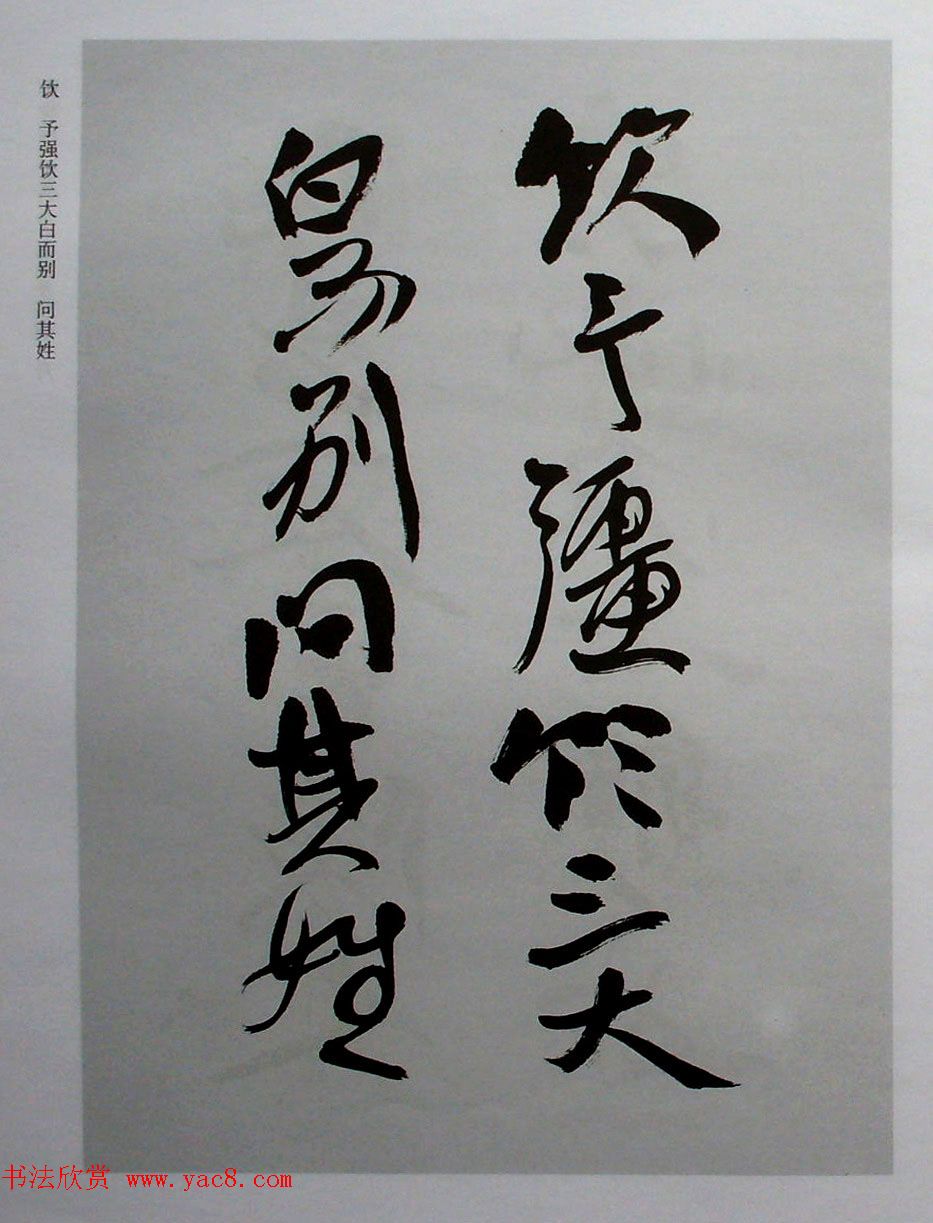 饮予彊饮三大
白而别问其姓
饮 予强饮三大白而别 问其姓
书法欣赏 www.yac8.com